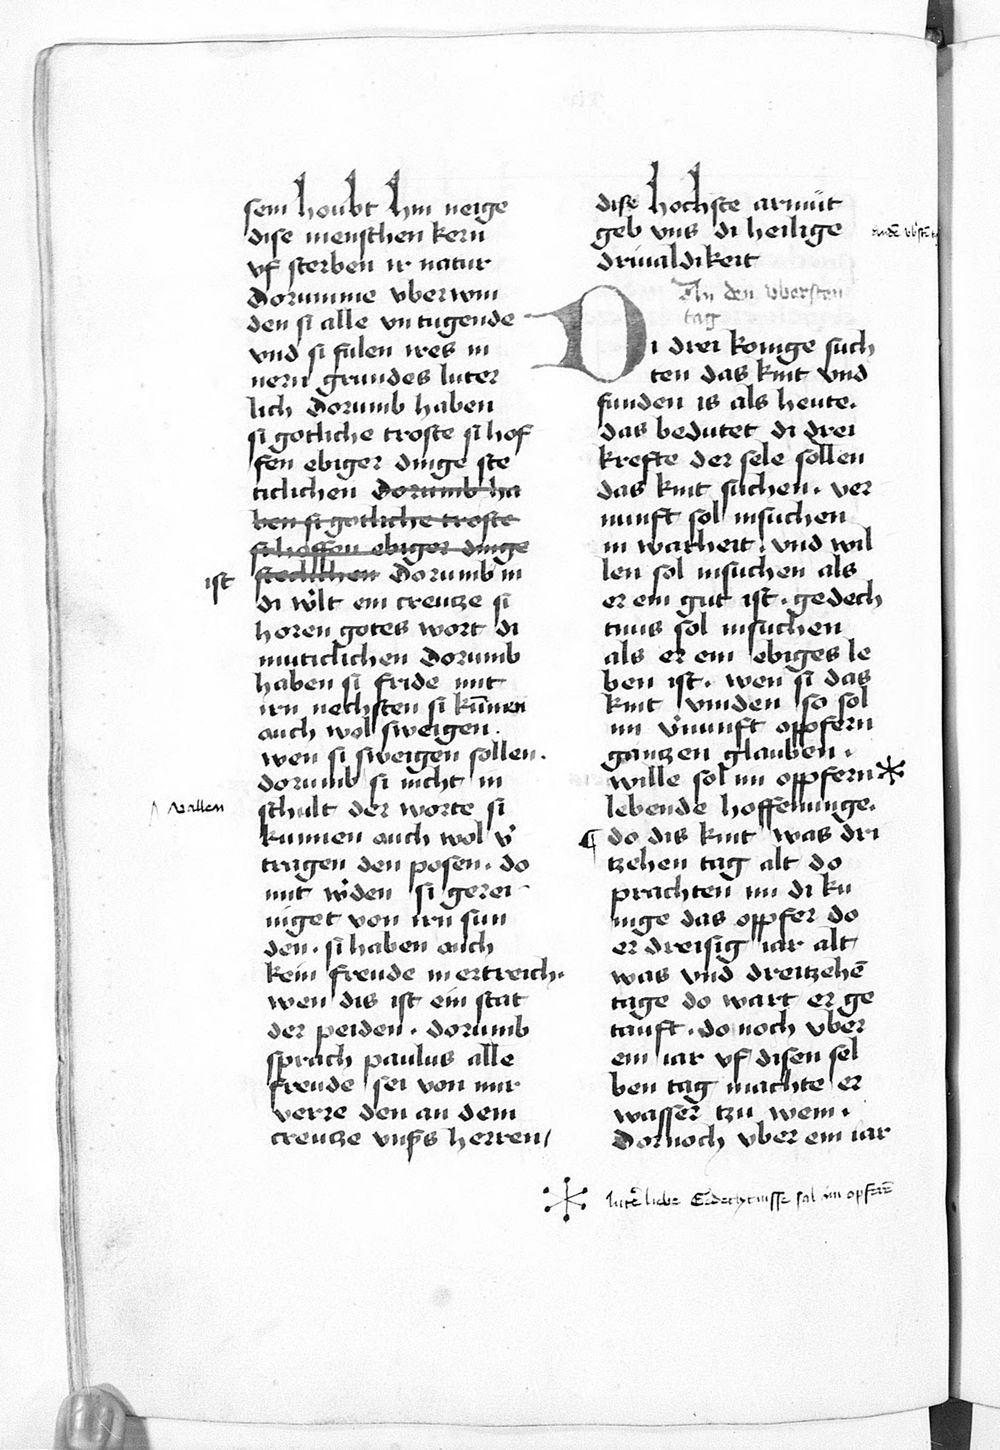 sein houbt hin neige
dise menschen kern
vf sterben ir natur
Dorumme vberwin
den si alle vntugende
vnd si fulen ires in
nern grundes luter
lich Dorumb haben
si gotliche troste si hof
fen ebiger dinge ste
ticlichen Dorumb ha
ben si gotliche troste
si hoffen ebiger dinge
steclichen Dorumb in
ist
di w̓lt ein creutze si
horen gotes wort di
muticlichen Dorumb
haben si fride mit
irn nechsten si kūnnen
auch wol sweigen.
wen si sweigen sollen.
dorumb si nicht in
vallen
schult der worte si
kunnen auch wol v̓
tragen den posen. do
mit w̓den si gerei
niget von irn sun
den. si haben auch
kein freude in ertreich.
wen dis ist ein stat
der peiden. dorumb
sprach paulus alle
freude sei von mir
verre den an dem
creutze vnsers herren
dise hochste armut
geb vns di heilige
drivaldikeit
An den vbersten
tag
Di drei konige such
ten das kint vnd
funden is als heute.
das bedutet di drei
krefte der sele sollen
das kint suchen. ver
nunft sol insuchen
in warheit. vnd wil
len sol insuchen als
er ein gut ist. gedech
tnus sol insuchen
als er ein ebiges le
ben ist. wen si das
kint vinden so sol
im v̓nunft oppfern
gantzen glauben.
wille sol im oppfern *
lebende hoffenunge.
¶ do dis kint was dri
tzehen tag alt do
prachten im di ku
nige das oppfer do
er dreisig iar alt
was vnd dreitzehē
tage do wart er ge
tauft. do noch vber
ein iar vf disen sel
ben tag machte er
wasser tzu wein.
Dornoch vber ein iar
* lutē liebe Gedechtnisse sal im opferē